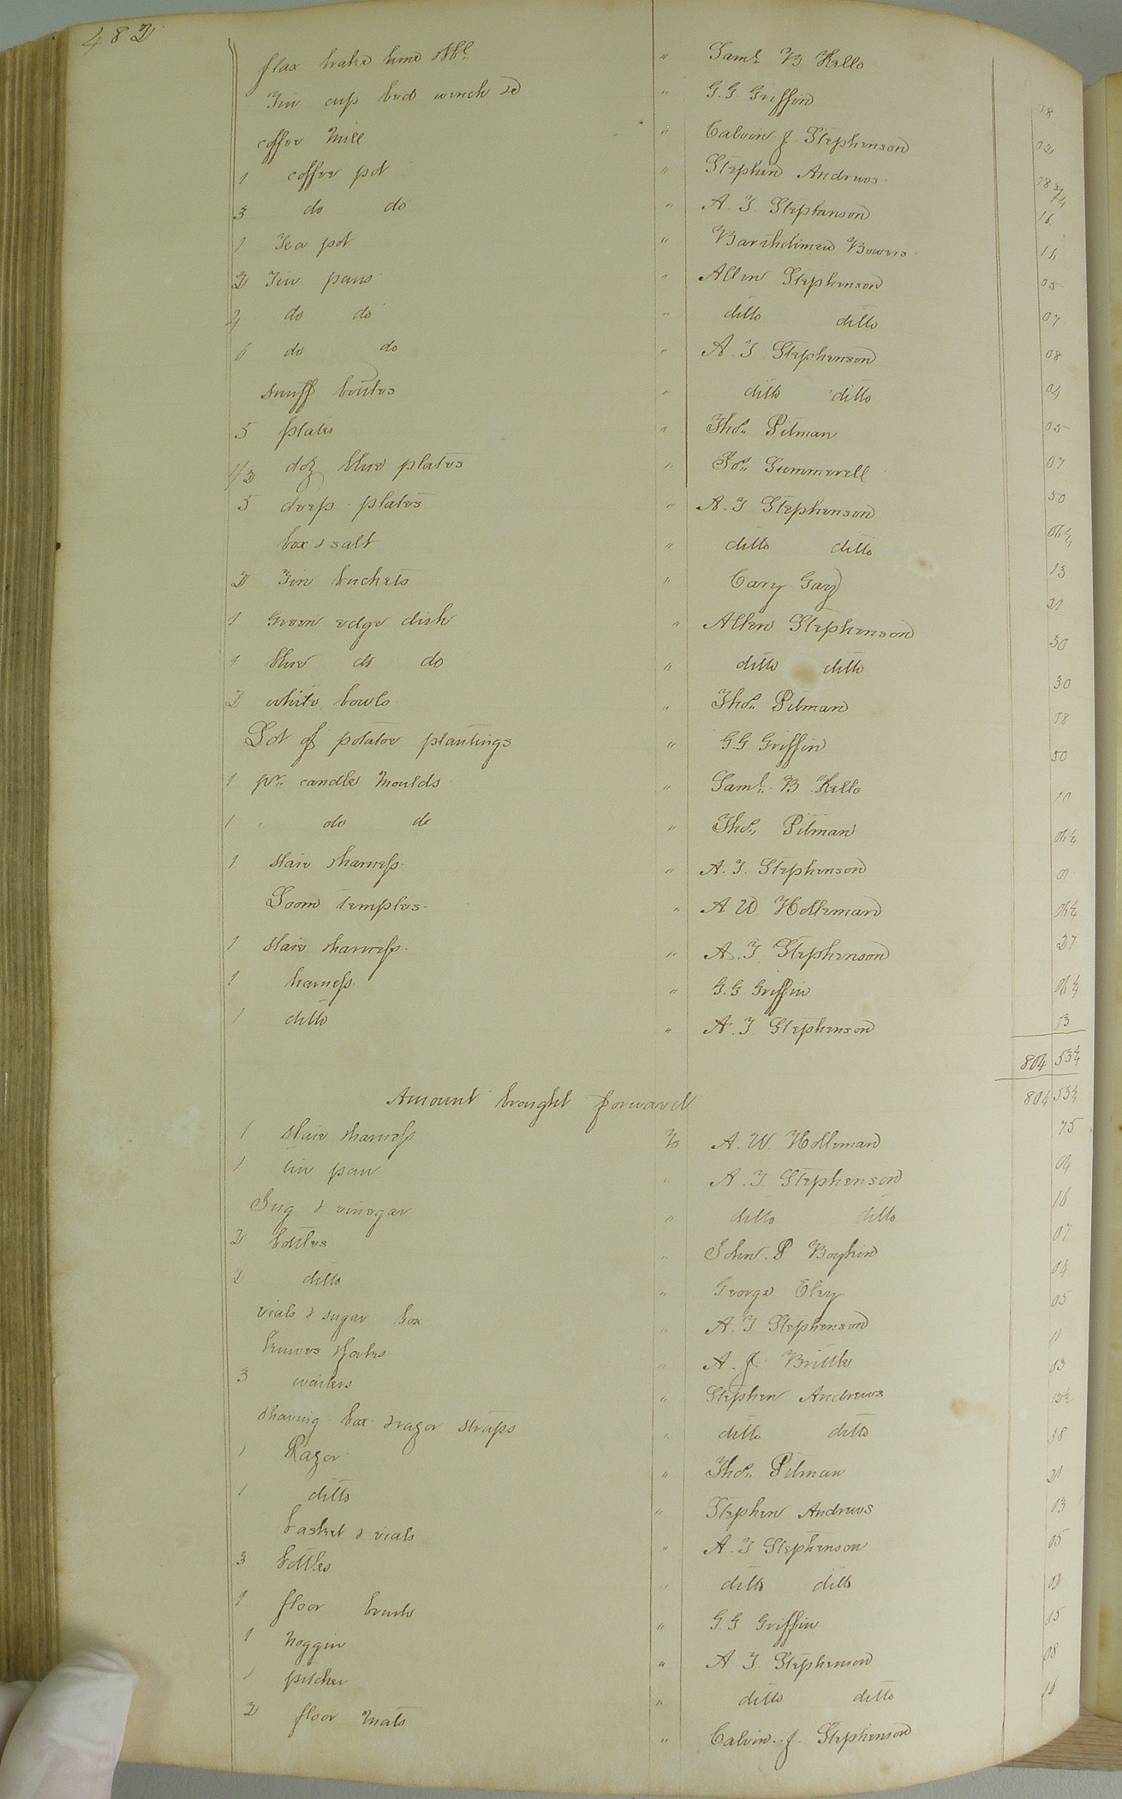 482
flax brake lime &c " Saml B Kello
Tin cup bed winch &c " G. G Griffin 18
coffee Mill " Calvin J Stephenson 02
1 coffee pot " Stephen Andrews 78 3/4
3 do do " A. T Stephenson 16
1 Tea pot " Bartholimew Bowers 11
2 Tin pans " Allen Stephenson 05
4 do do " ditto ditto 07
6 do do " A. T Stephenson 08
snuff bottles " ditto ditto 04
5 plates " Thos Pitman 05
1/2 doz blue plates " Jos Summerell 07
5 deep plates " A. T Stephenson 50
box & salt " ditto ditto 06 1/4
2 Tin buckets " Cary Gay 13
1 Green edge dish " Allen Stephenson 21
1 blue do do " ditto ditto 30
2 white bowls " Thos Pitman 30
Lot of potatoe plantings " G. G Griffin 18
1 pr candle Moulds " Saml B Kello 50
1 " do do " Thos Pitman 10
1 slaie & harness " A. T. Stephenson 06 1/4
Loom temples " A W Holleman 01
1 slaie & harness " A. T Stephenson 06 1/4
1 harness " G. G Griffin 27
1 ditto " A. T Stephenson 06 1/4
13
804 53 1/4
Amount brought forward 804 53 1/4
1 slaie & harness To A. W. Holleman 75
1 tin pan " A. T Stephenson 04
Jug & vinegar " ditto ditto 16
2 bottles " John P Boykin 07
2 ditto " George Eley 04
vials & sugar box " A. T Stephenson 05
knives & forks " A. J. Brittle 11
3 waiters " Stephen Andrews 03
shaving box & razor straps " ditto ditto 13 1/2
1 Razor " Thos Pitman 38
1 ditto " Stephen Andrews 21
basket & vials " A. T Stephenson 03
3 bottles " ditto ditto 05
1 floor brush " G. G Griffin 08
1 Noggin " A T. Stephenson 15
1 pitcher " ditto ditto 08
2 floor Mats " Calvin J Stephenson 16